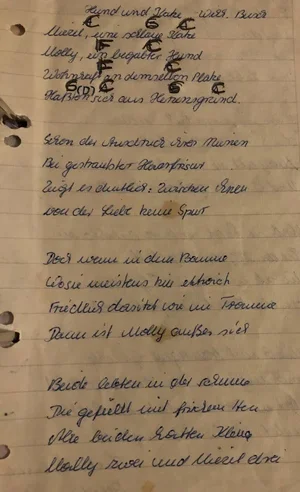 Hund und Katze - Wilh. Busch
C G C
Miezel, eine schlaue Katze
F C
Molly, ein begabter Hund
F
Wohnhaft an demselben Platze
G C
Haßten sich aus Herzensgrund.
Schon der Ausdruck ihrer Mienen
Bei gesträubter Haarfrisur
Zeigt es deutlich: Zwischen ihnen
von der Liebe keine Spur
Doch wenn in dem Baume
Wo sie meistens hin entwich
Friedlich dasitzt wie im Traume
Dann ist Molly außer sich
Beide lebten in der Scheune
Die gefüllt mit frischem Heu
Alle beiden hatten Kleine
Molly zwei und Miezel drei